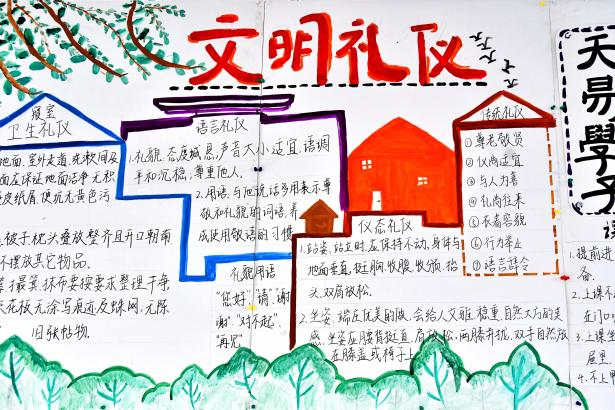 文明礼仪
寝室
卫生礼仪
地面,室外走道,洗漱间及
面在保证地面洁净,无积
皮纸屑,便坑无黄色污
被子枕头叠放整齐且开口朝南
不摆放其它物品.
要按要求整理干净
天花板无涂写痕迹及蛛网.无陈
旧张帖物.
语言礼仪
1.礼貌.态度诚恳,声音大小适宜,语调
平和沉稳,尊重他人.
2.用语.与他说话多用表示尊
敬和礼貌的词语.养
成使用敬语的习惯
礼貌用语
"您好""请""谢
谢""对不起"
"再见"
仪态礼仪
1.站姿,站立时.应保持不动,身体与
地面垂直,挺胸,收腹,收颌,抬
头.双肩放松.
2.坐姿.端庄优美的做,会给人文雅.稳重.自然大方的美
感.坐在腰背挺直.肩放松,两膝并拢,双手自然放
在膝盖或椅子上
传统礼仪
①尊老敬贤
②仪尚适宜
③与人为善
④礼尚往来
⑤衣着容貌
⑥行为举止
⑦语言辞令
天昜學子
1.提前进
备.
2.上课
在门口
3.上课
屋里
4.不上